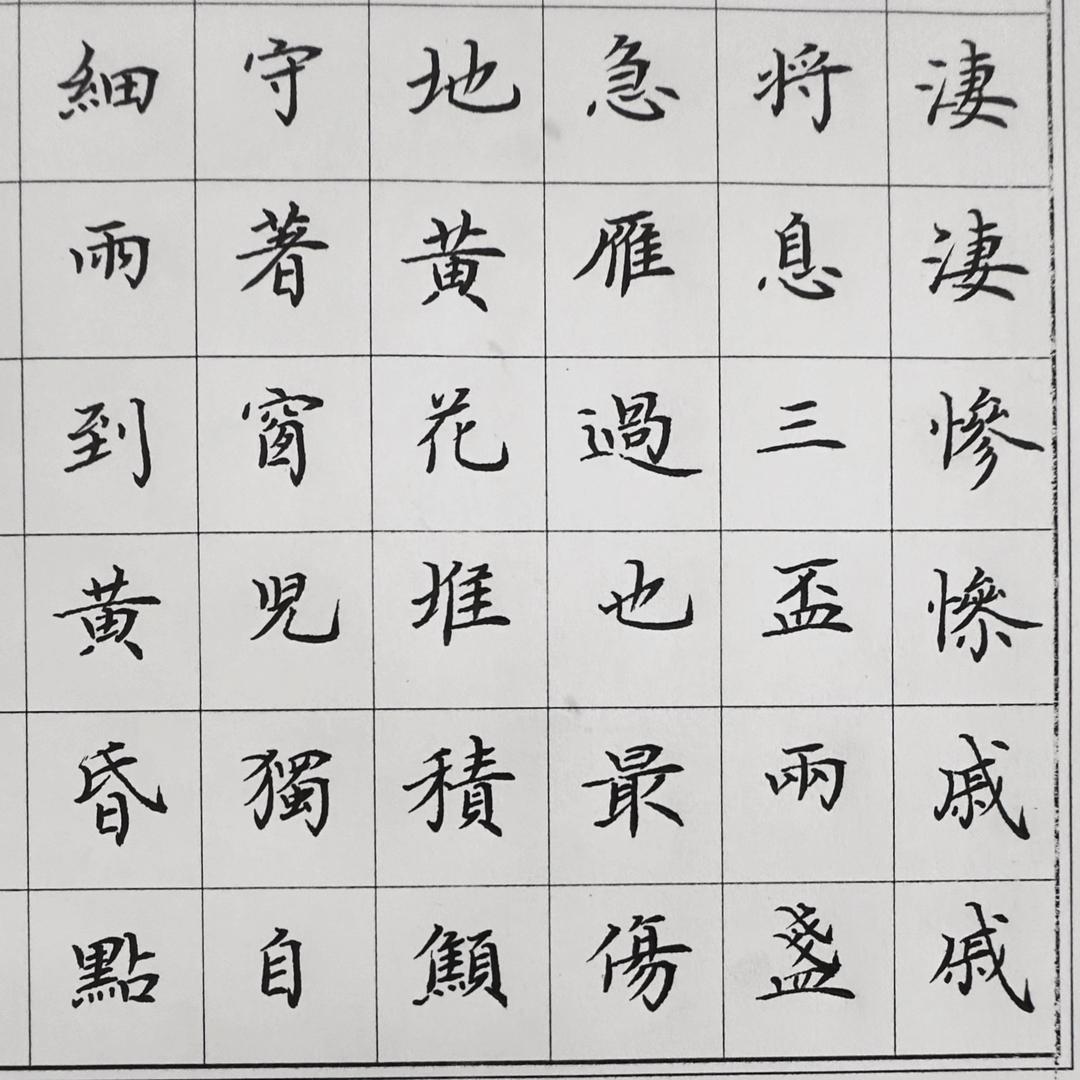 淒淒慘慘戚戚
将息三盃兩盞
急雁過也最傷
地黃花堆積顦
守著窗兒獨自
細雨到黃昏點